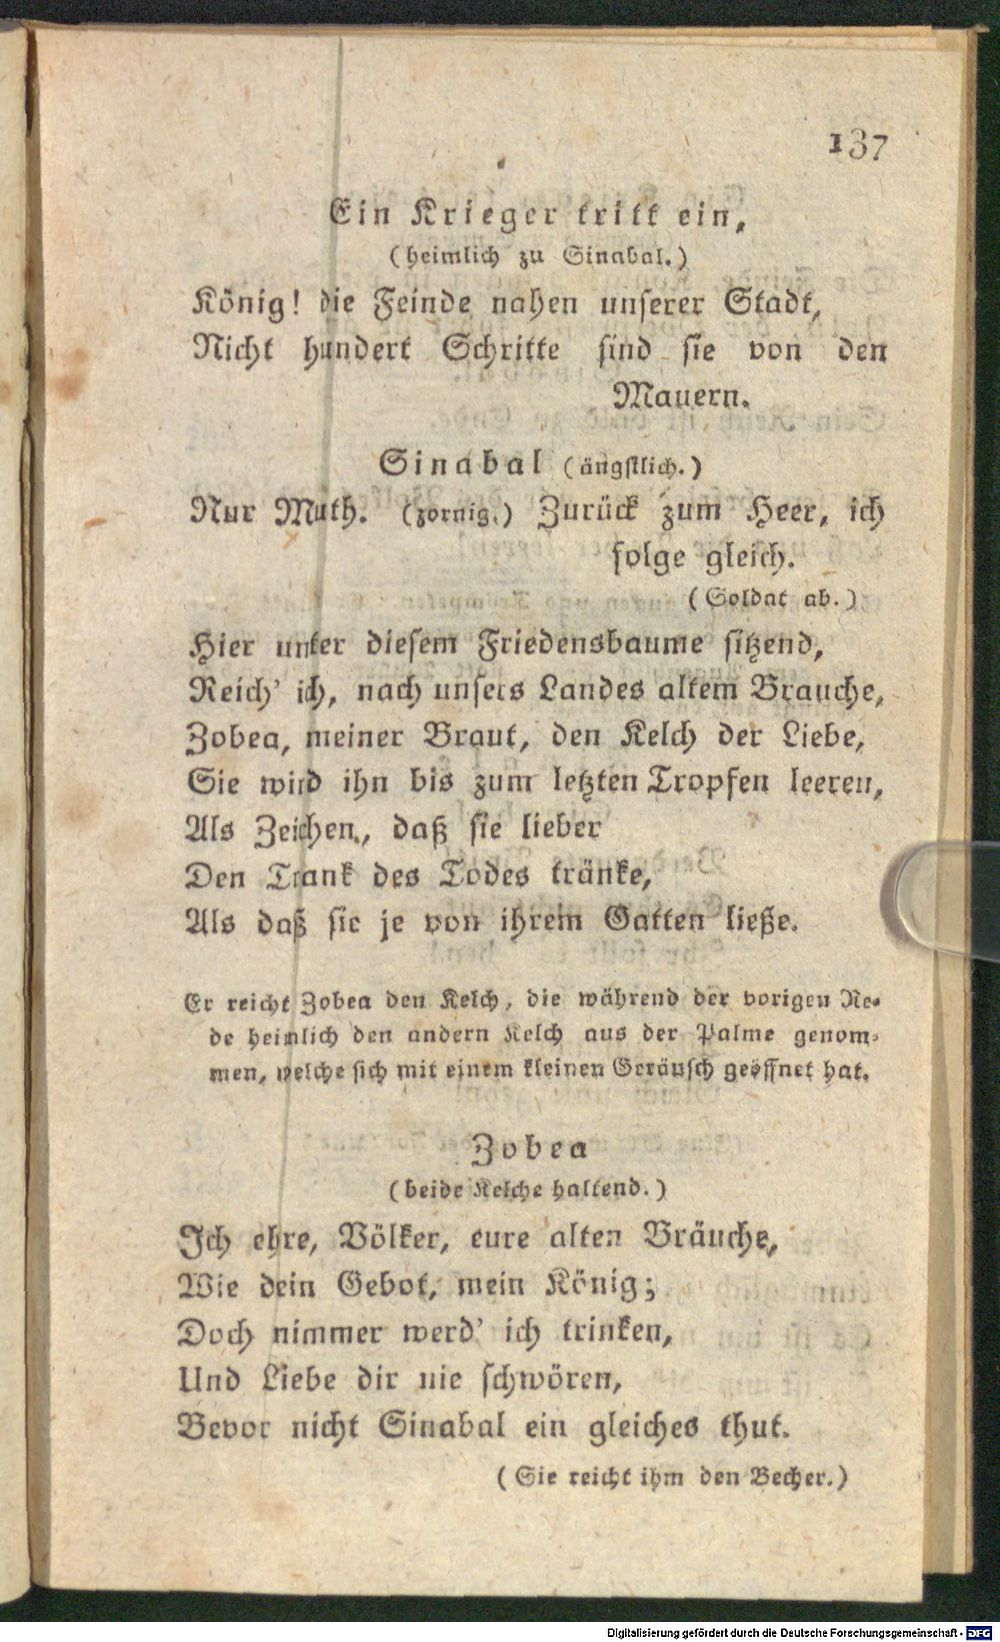 137
Ein Krieger tritt ein,
(heimlich zu Sinabal.)
König! die Feinde nahen unserer Stadt,
Nicht hundert Schritte sind sie von den
Mauern.
Sinabal (ängstlich.)
Nur Muth. (zornig.) Zurück zum Heer, ich
folge gleich.
(Soldat ab.)
Hier unter diesem Friedensbaume sitzend,
Reich' ich, nach unsers Landes altem Brauche,
Zobea, meiner Braut, den Kelch der Liebe,
Sie wird ihn bis zum letzten Tropfen leeren,
Als Zeichen, daß sie lieber
Den Trank des Todes tränke,
Als daß sie je von ihrem Gatten ließe.
Er reicht Zobea den Kelch, die während der vorigen Re-
de heimlich den andern Kelch aus der Palme genom-
men, welche sich mit einem kleinen Geräusch geöffnet hat.
Zobea
(beide Kelche haltend.)
Ich ehre, Völker, eure alten Bräuche,
Wie dein Gebot, mein König;
Doch nimmer werd' ich trinken,
Und Liebe dir nie schwören,
Bevor nicht Sinabal ein gleiches thut.
(Sie reicht ihm den Becher.)
Digitalisierung gefördert durch die Deutsche Forschungsgemeinschaft - DFG